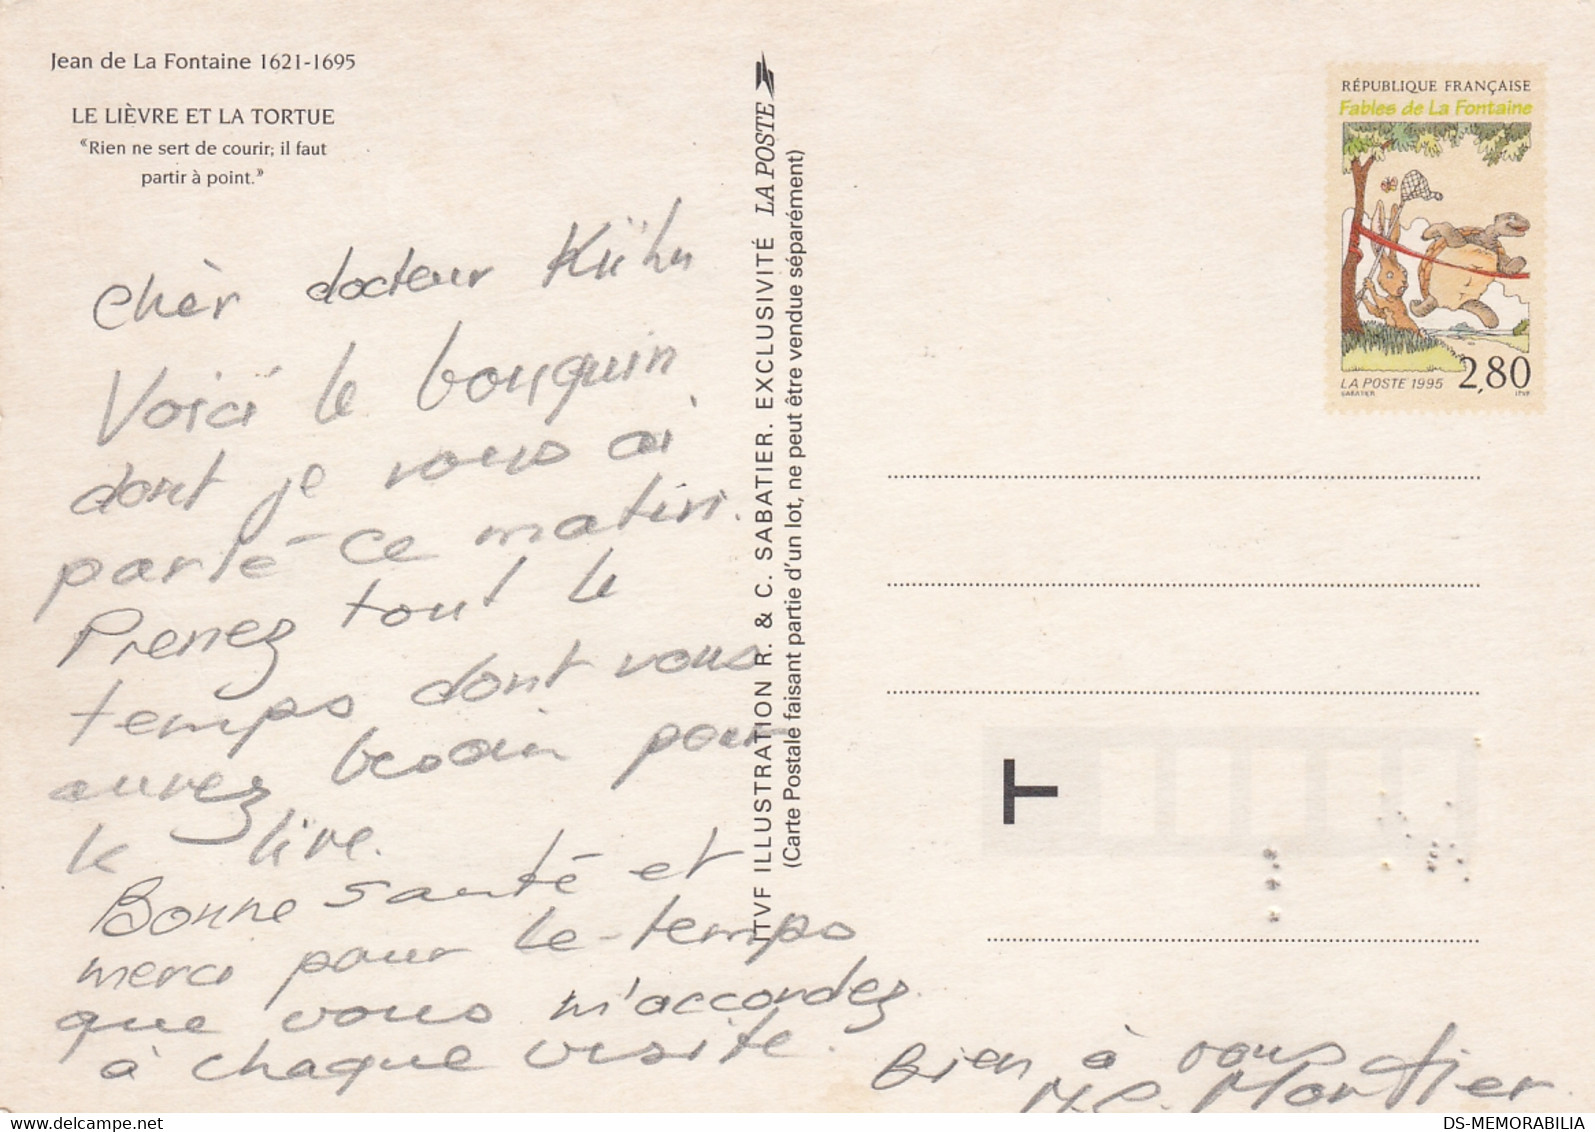 Jean de La Fontaine 1621-1695
LE LIÈVRE ET LA TORTUE
“Rien ne sert de courir; il faut
partir à point.”
Chèr docteur Kühn
Voici le bouquin
dont je vous ai
parlé ce matin.
Prenez tout le
temps dont vous
aurez besoin pour
le lire.
Bonne santé et
merci pour le temps
que vous m'accordez
à chaque visite.
Bien à vous
M.C. Mortier
ITVF ILLUSTRATION R. & C. SABATIER. EXCLUSIVITÉ LA POSTE
(Carte Postale faisant partie d'un lot, ne peut être vendue séparément)
RÉPUBLIQUE FRANÇAISE
Fables de La Fontaine
LA POSTE 1995 2,80
SABATIER ITVF
T
DS-MEMORABILIA.COM